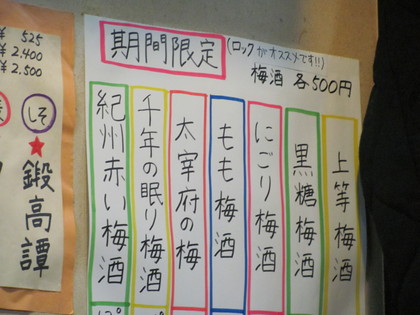 期間限定
(ロックがオススメです!!)
梅酒 各500円
上等梅酒
黒糖梅酒
にごり梅酒
もも梅酒
太宰府の梅
千年の眠り梅酒
紀州赤い梅酒
¥ 525
¥ 2,400
¥ 2,500
しそ
★鍛高譚